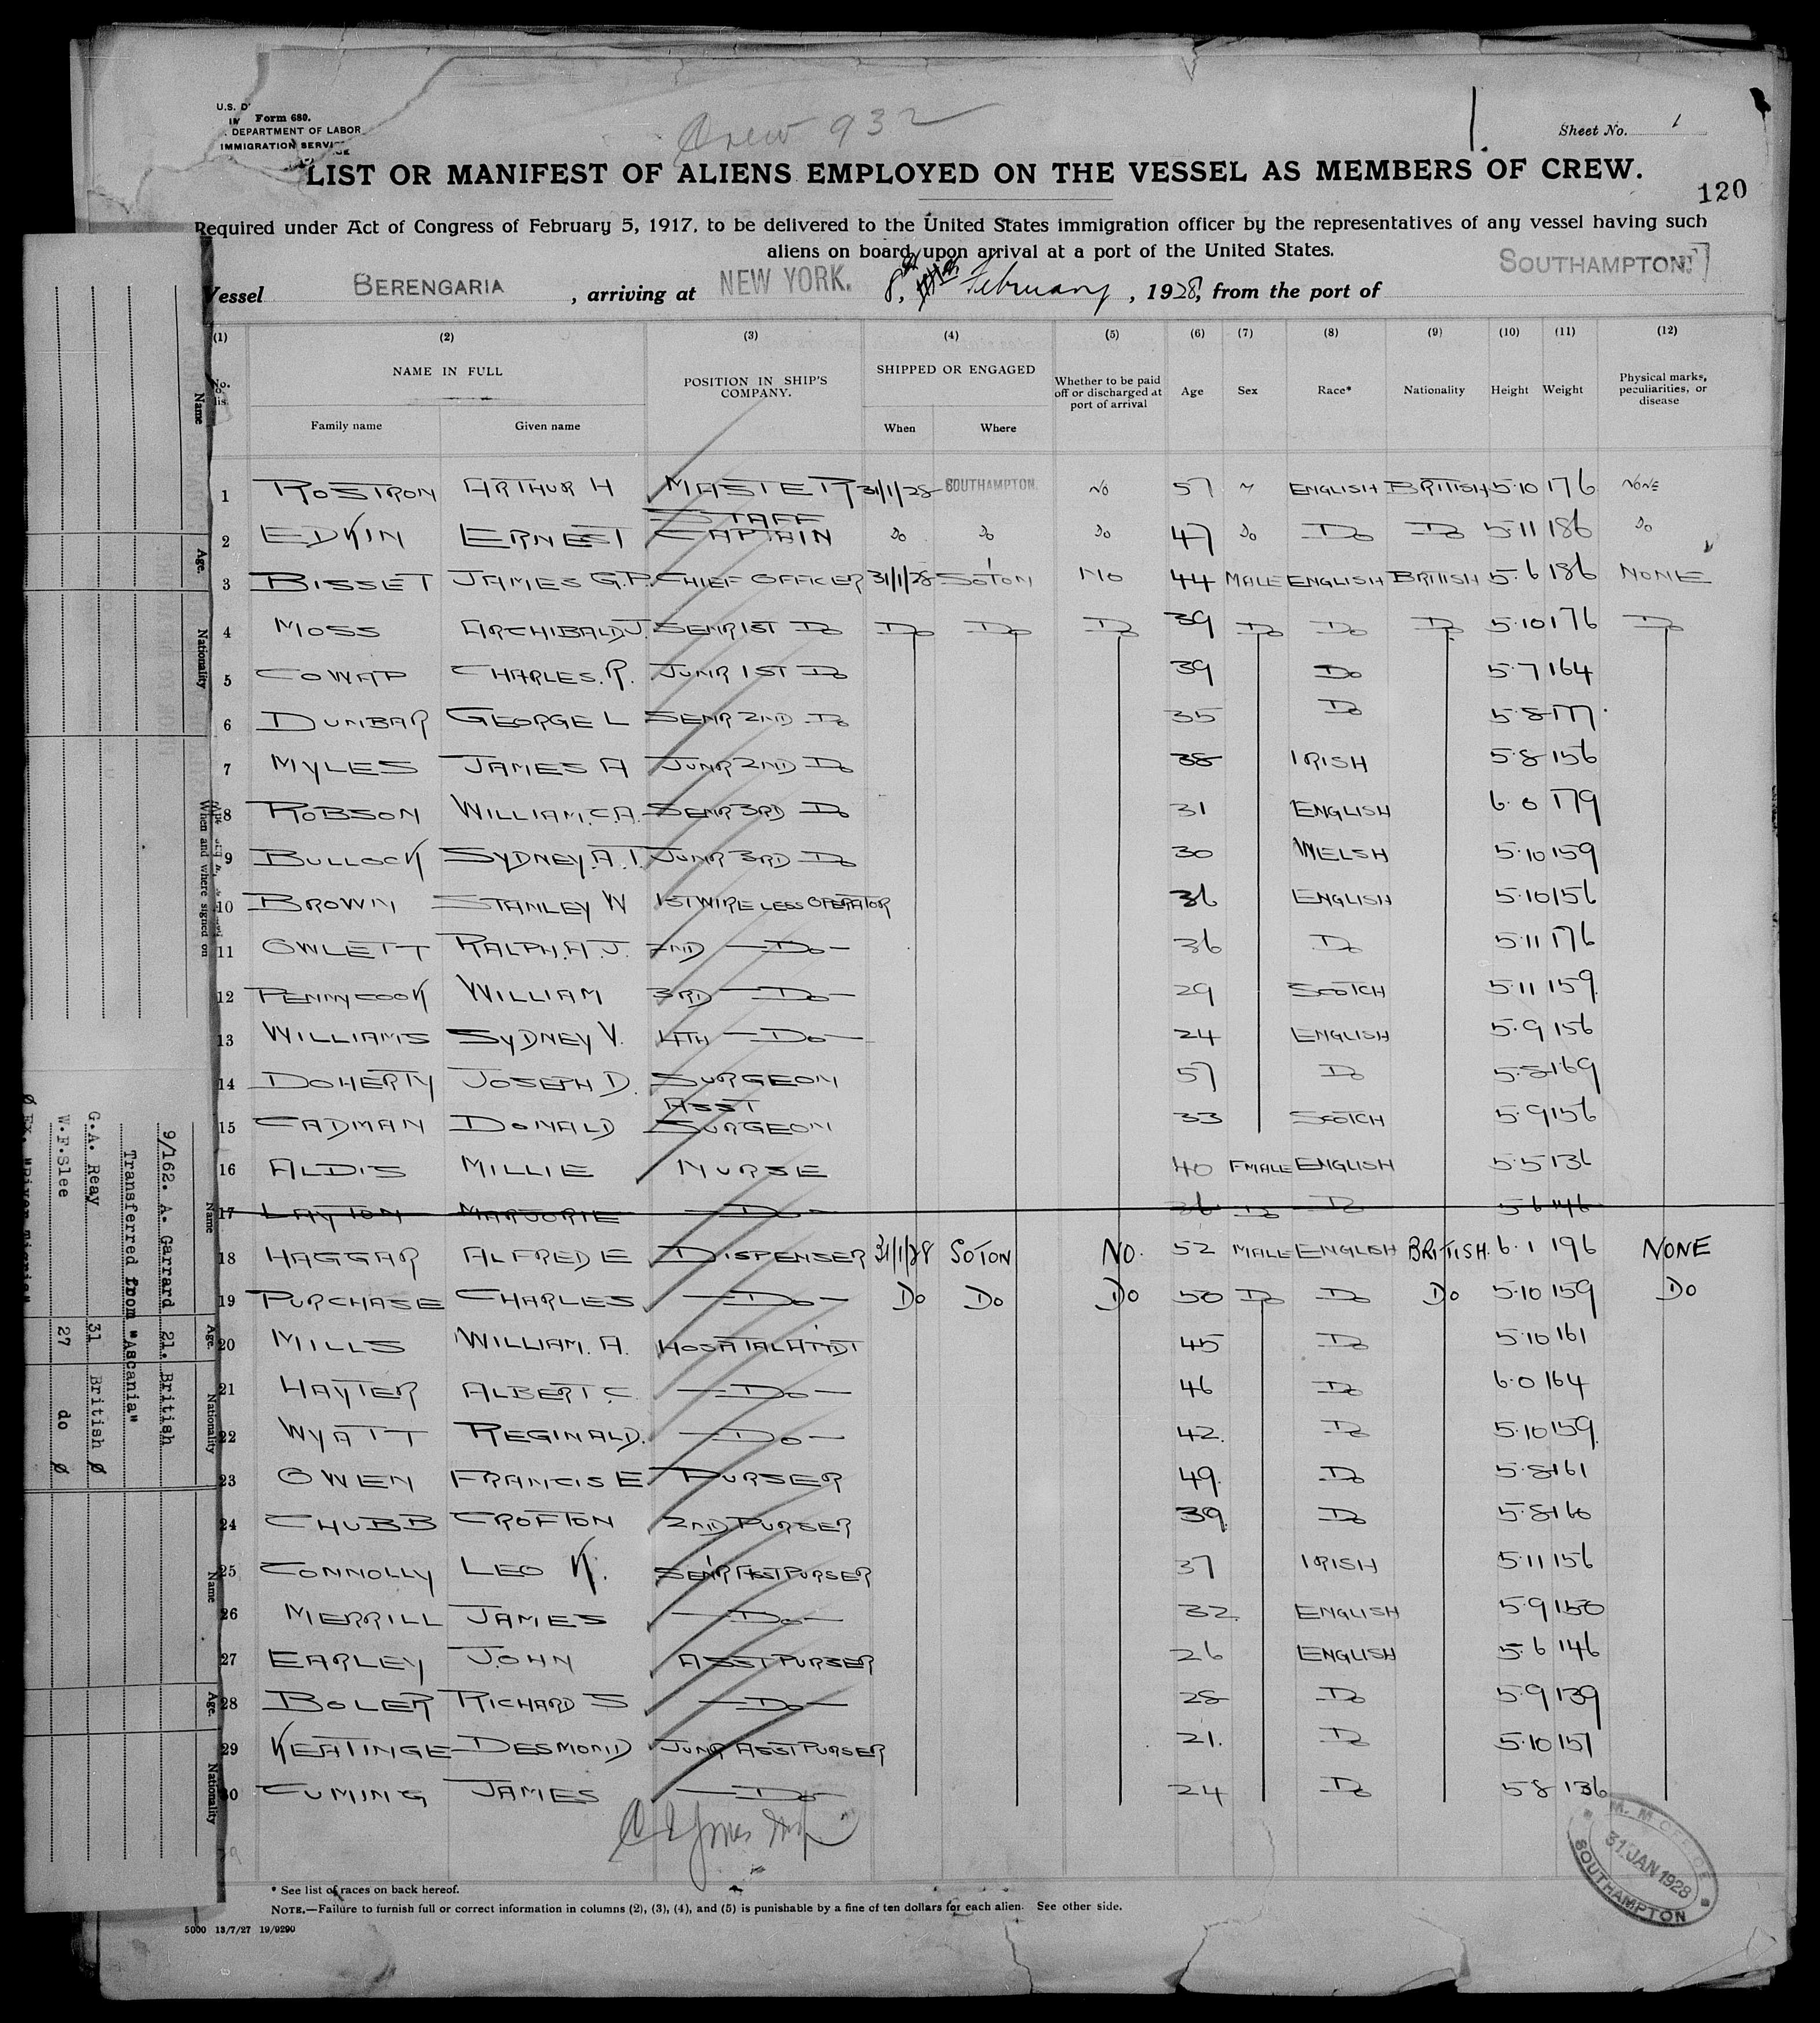 Crew 932
Form 680.
U.S. DEPARTMENT OF LABOR
IMMIGRATION SERVICE
Sheet No. 1
LIST OR MANIFEST OF ALIENS EMPLOYED ON THE VESSEL AS MEMBERS OF CREW.
120
Required under Act of Congress of February 5, 1917, to be delivered to the United States immigration officer by the representatives of any vessel having such
aliens on board upon arrival at a port of the United States.
Vessel BERENGARIA, arriving at NEW YORK. 8th February, 1928, from the port of SOUTHAMPTON
(1) (2) (3) (4) (5) (6) (7) (8) (9) (10) (11) (12)
No. NAME IN FULL POSITION IN SHIP'S COMPANY. SHIPPED OR ENGAGED Whether to be paid off or discharged at port of arrival Age Sex Race* Nationality Height Weight Physical marks, peculiarities, or disease
Family name Given name When Where
1 ROSTRON ARTHUR H MASTER 31/1/28 SOUTHAMPTON. NO 57 M ENGLISH BRITISH 5.10 176 NONE
2 EDKIN ERNEST STAFF CAPTAIN DO DO DO 47 DO DO DO 5.11 186 DO
3 BISSET JAMES G.P. CHIEF OFFICER 31/1/28 SOTON NO 44 MALE ENGLISH BRITISH 5.6 186 NONE
4 MOSS ARCHIBALD J. SENR 1ST DO DO DO DO 39 DO DO DO 5.10 176 DO
5 COWAP CHARLES. R. JUNR 1ST DO 39 DO 5.7 164
6 DUNBAR GEORGE L SENR 2ND DO 35 DO 5.8 177
7 MYLES JAMES A JUNR 2ND DO 38 IRISH 5.8 156
8 ROBSON WILLIAM. C.A. SENR 3RD DO 31 ENGLISH 6.0 179
9 BULLOCK SYDNEY. A.T. JUNR 3RD DO 30 WELSH 5.10 159
10 BROWN STANLEY W 1ST WIRELESS OPERATOR 36 ENGLISH 5.10 156
11 OWLETT RALPH. A.J. 2ND DO 36 DO 5.11 176
12 PENNYCOOK WILLIAM 3RD DO 29 SCOTCH 5.11 159
13 WILLIAMS SYDNEY V. 4TH DO 24 ENGLISH 5.9 156
14 DOHERTY JOSEPH D. SURGEON 57 DO 5.8 169
15 CADMAN DONALD ASST SURGEON 33 SCOTCH 5.9 156
16 ALDIS MILLIE NURSE 40 FMALE ENGLISH 5.5 136
17 LAYTON MARJORIE DO 36 DO DO 5.6 146
18 HAGGAR ALFRED E DISPENSER 31/1/28 SOTON NO. 52 MALE ENGLISH BRITISH. 6.1 196 NONE
19 PURCHASE CHARLES DO DO DO DO 50 DO DO DO 5.10 159 DO
20 MILLS WILLIAM. A. HOSPITAL ATTDT 45 DO 5.10 161
21 HAYTER ALBERT. C. DO 46 DO 6.0 164
22 WYATT REGINALD. DO 42. DO 5.10 159.
23 OWEN FRANCIS E PURSER 49. DO 5.8 161
24 CHUBB CROFTON 2ND PURSER 39. DO 5.8 160
25 CONNOLLY LEO K. SENR ASST PURSER 37 IRISH 5.11 156
26 MERRILL JAMES DO 32. ENGLISH 5.9 150
27 EARLEY JOHN ASST PURSER 26 ENGLISH 5.6 146
28 BOLER RICHARD S DO 28 DO 5.9 139
29 KEATINGE DESMOND JUNR ASST PURSER 21. DO 5.10 151
30 CUMING JAMES DO 24 DO 5.8 136
M. M. OFFICE
31 JAN 1928
SOUTHAMPTON
* See list of races on back hereof.
NOTE.—Failure to furnish full or correct information in columns (2), (3), (4), and (5) is punishable by a fine of ten dollars for each alien. See other side.
5000 13/7/27 19/9290
Name Age. Nationality When and where signed on
Name Age. Nationality
Name Age. Nationality
9/162. A. Garrard 21. British
Transferred from "Ascania"
G.A. Reay 31 British Ø
W.F.Slee 27 do Ø